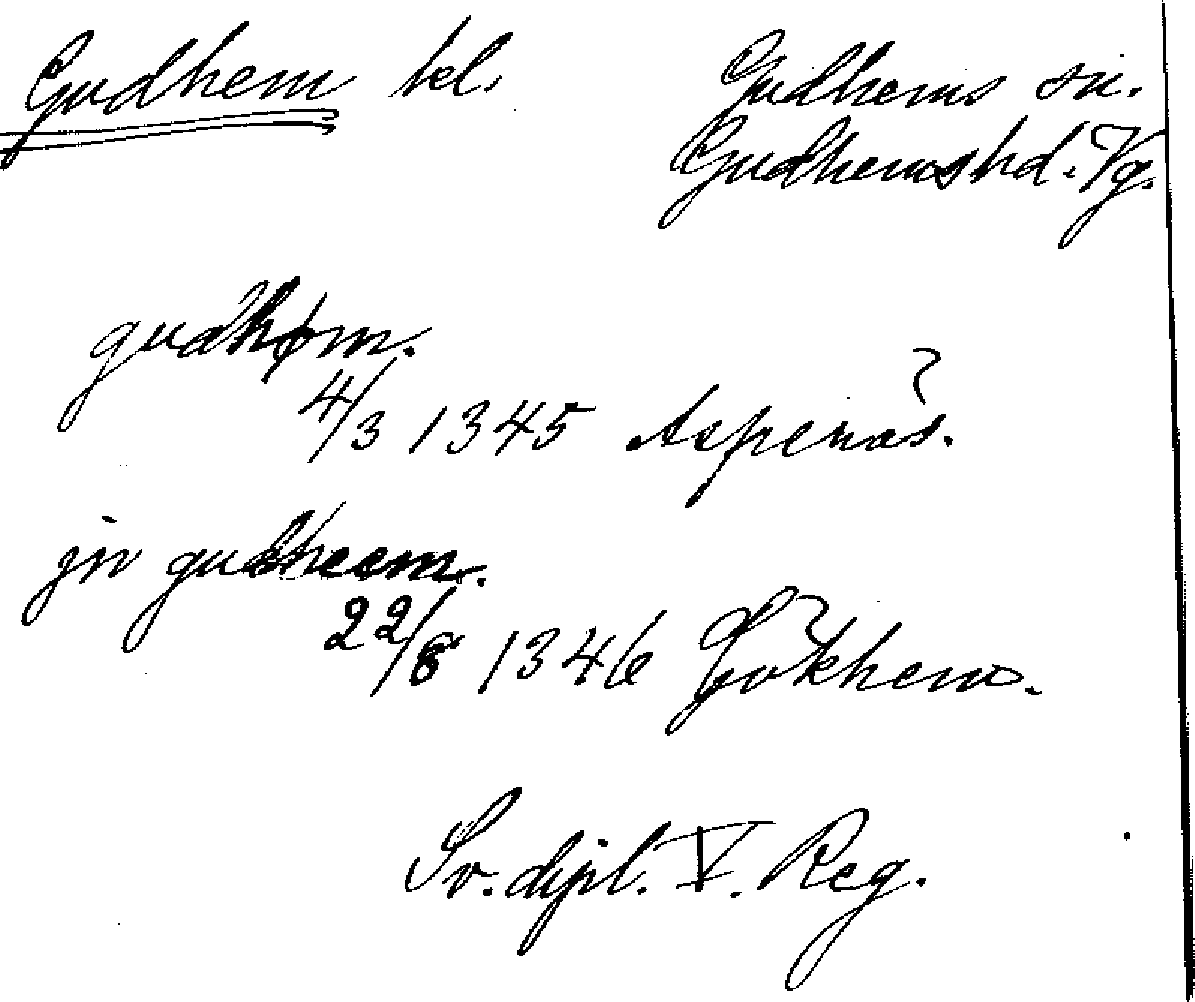 Gudhem kl.
Gudhems sn.
Gudhems hd. Vg.
gudhøm.
4/3 1345 Aspenäs.
jn gudheem.
22/8 1346 Gökhem.
Sv. dipl. V. Reg.